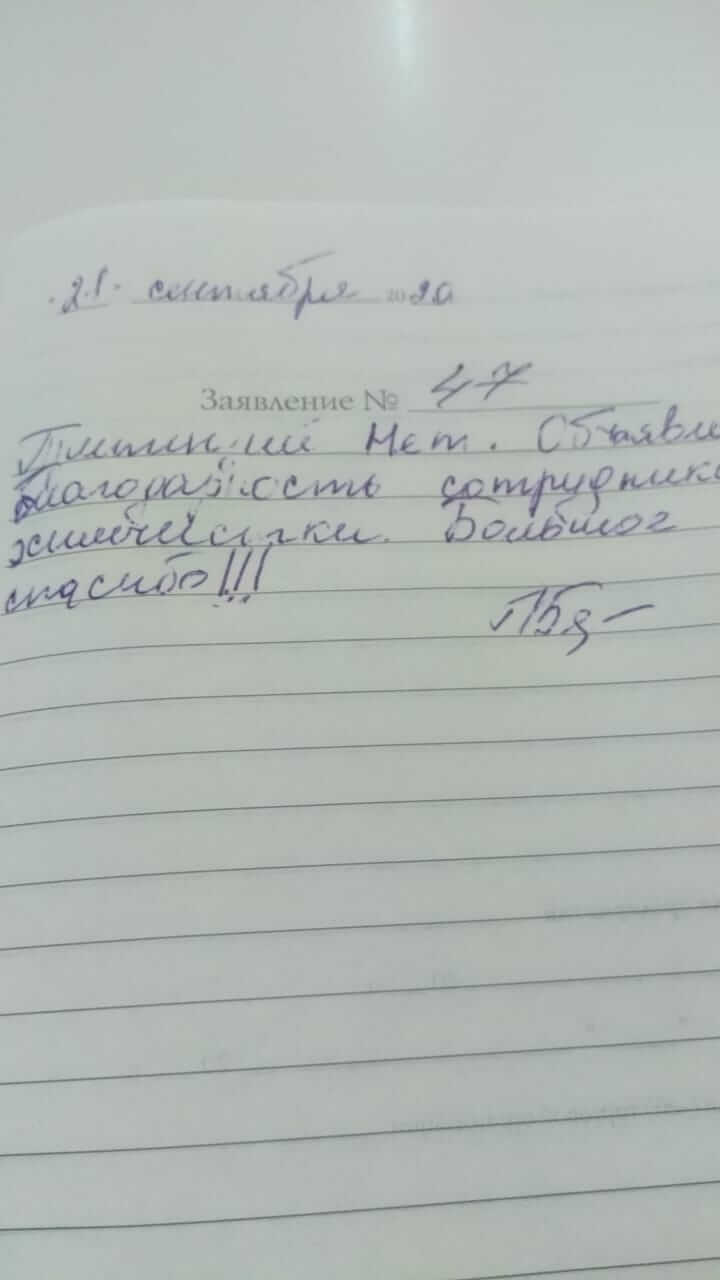 21 сентября 2020
Заявление № 47
Нет. Объявля
благодарность сотрудника
химчистки. Большое
спасибо!!!